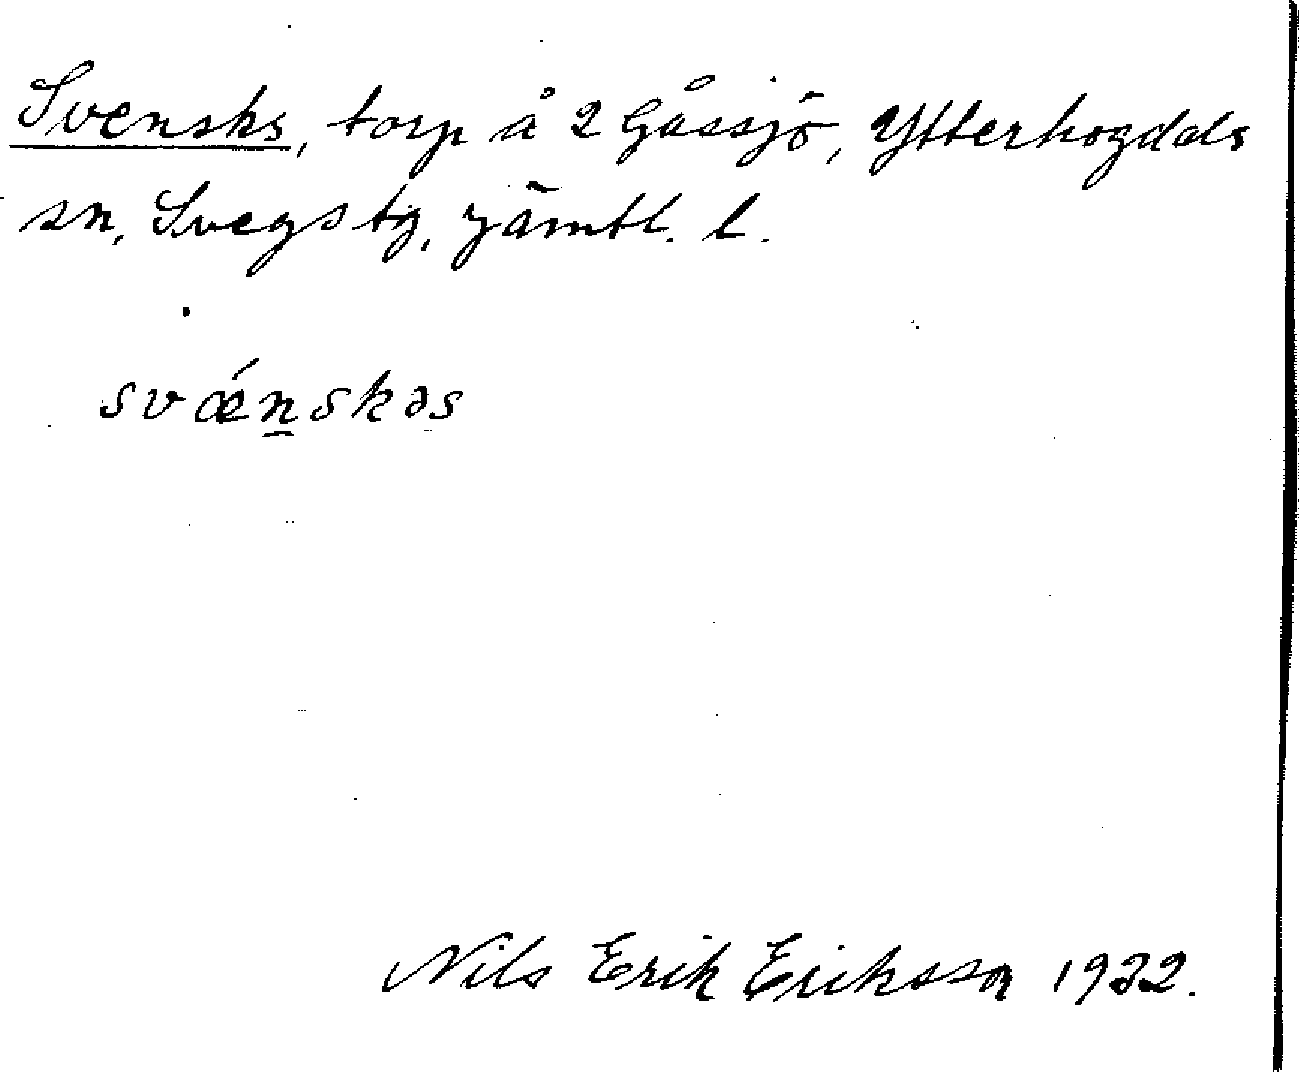 Svensks, torp å 2 Gåssjö, Ytterhogdals
sn, Svegs tg, Jämtl. l.
svǽn̲skəs
Nils Erik Eriksson 1932.